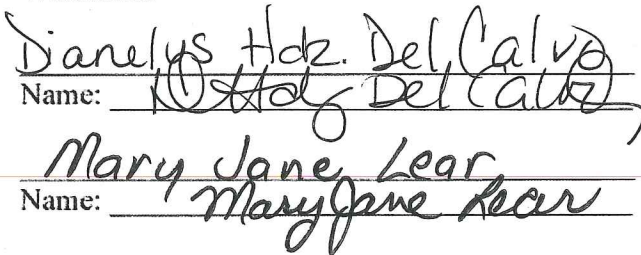 Dianelys Hdz. Del Calvo
Name: D Hdz Del Calvo
Mary Jane Lear
Name: Mary Jane Lear